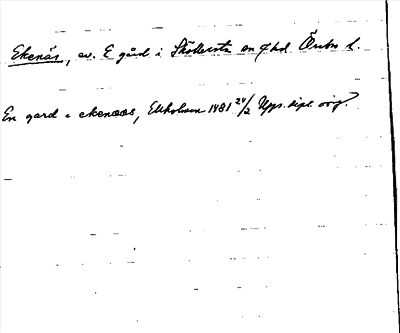 Ekenäs, av. E gård i Sköllersta sn o hd. Örebro l.
En gard i ekenææs, Ekholmen 1481 24/2 Upps. dipl. orig.